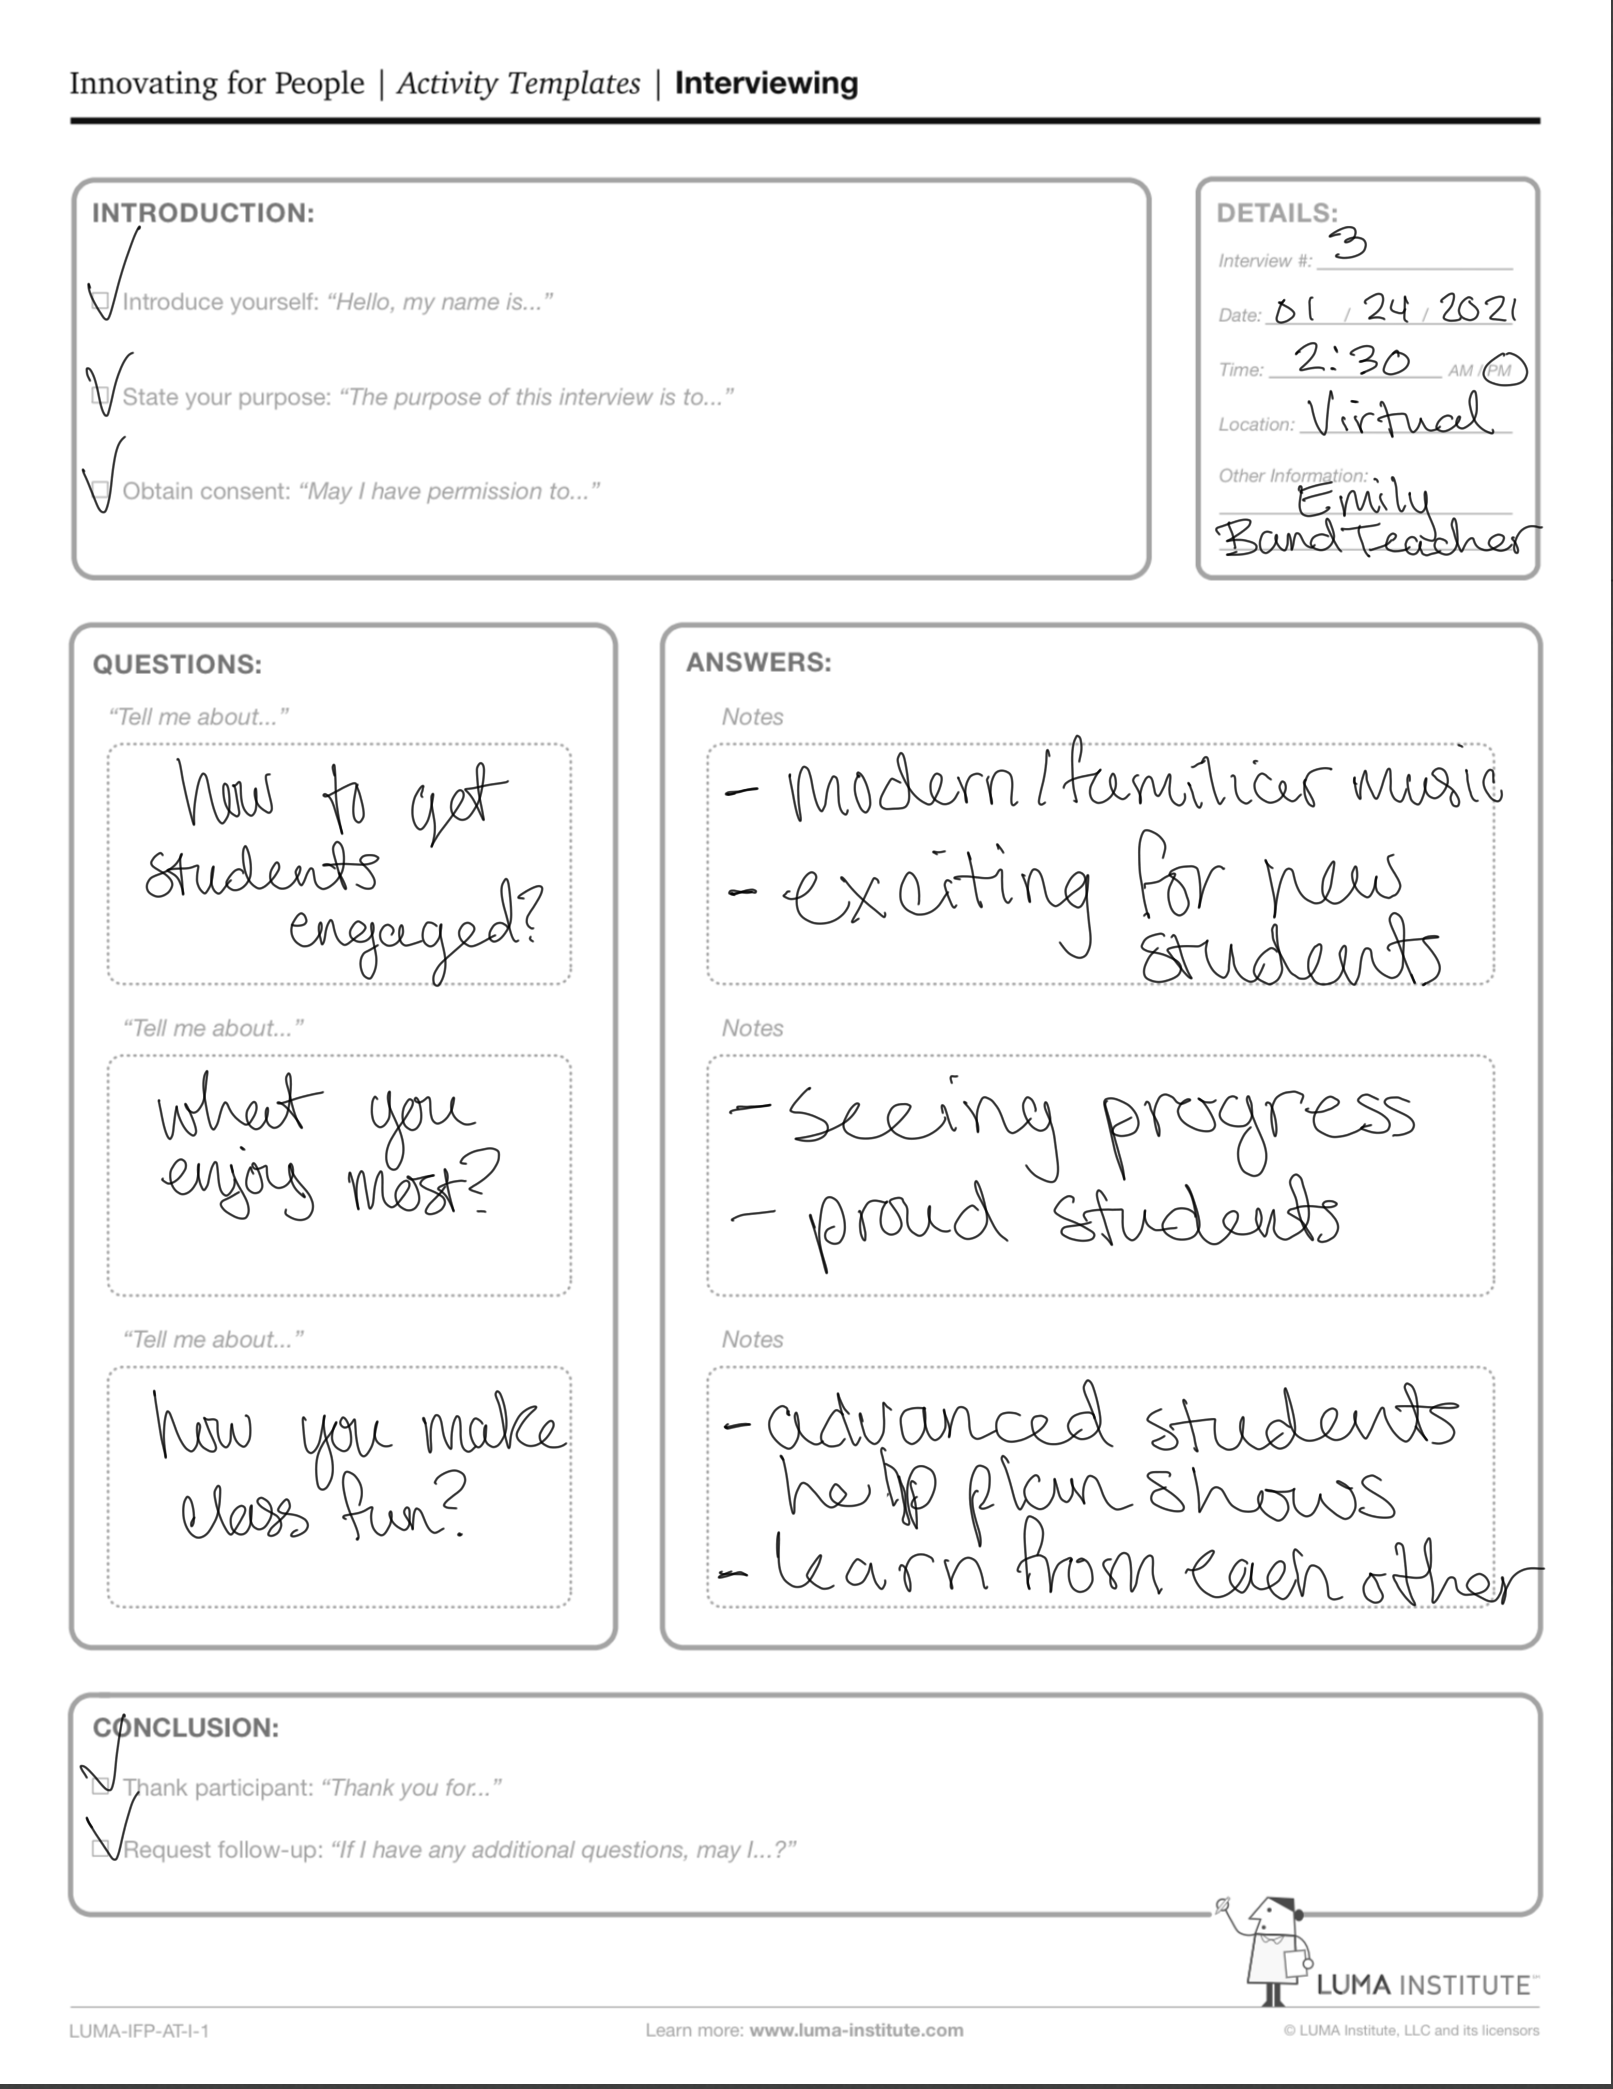 Innovating for People | Activity Templates | Interviewing
INTRODUCTION:
Introduce yourself: “Hello, my name is...”
State your purpose: “The purpose of this interview is to...”
Obtain consent: “May I have permission to...”
DETAILS:
Interview #: 3
Date: 01 / 24 / 2021
Time: 2:30 AM / PM
Location: Virtual
Other Information:
Emily
Band Teacher
QUESTIONS:
“Tell me about...”
how to get
students
engaged?
“Tell me about...”
what you
enjoy most?
“Tell me about...”
how you make
class fun?
ANSWERS:
Notes
- modern/familiar music
- exciting for new
students
Notes
- seeing progress
- proud students
Notes
- advanced students
help plan shows
- learn from each other
CONCLUSION:
Thank participant: “Thank you for...”
Request follow-up: “If I have any additional questions, may I...?”
LUMA INSTITUTE
LUMA-IFP-AT-I-1
Learn more: www.luma-institute.com
© LUMA Institute, LLC and its licensors